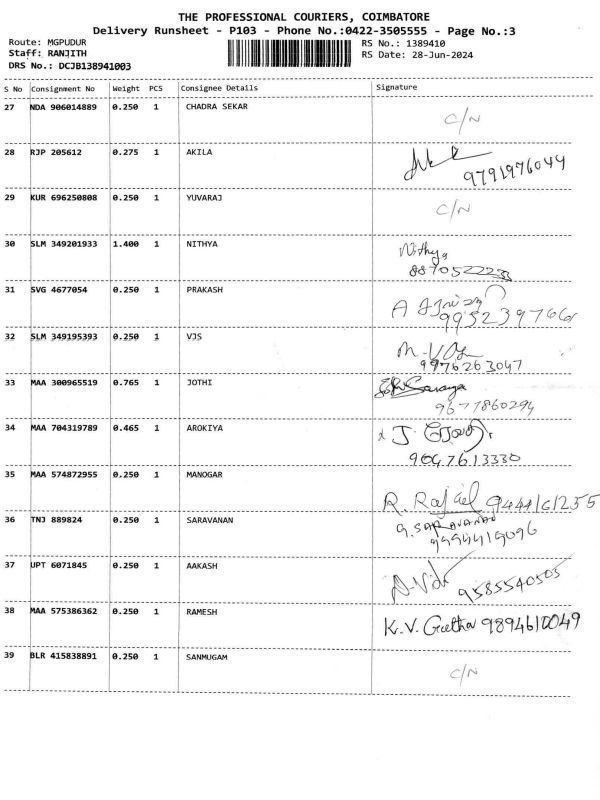 THE PROFESSIONAL COURIERS, COIMBATORE
Delivery Runsheet - P103 - Phone No.:0422-3505555 - Page No.:3
Route: MGPUDUR
RS No.: 1389410
Staff: RANJITH
RS Date: 28-Jun-2024
DRS No.: DCJB138941003
S No Consignment No Weight PCS Consignee Details Signature
27 NDA 906014889 0.250 1 CHADRA SEKAR C/N
28 RJP 205612 0.275 1 AKILA
9791976049
29 KUR 696250808 0.250 1 YUVARAJ C/N
30 SLM 349201933 1.400 1 NITHYA Nithya
8870522233
31 SVG 4677054 0.250 1 PRAKASH
9952397661
32 SLM 349195393 0.250 1 VJS
9976263047
33 MAA 300965519 0.765 1 JOTHI Saranya
9677860294
34 MAA 704319789 0.465 1 AROKIYA J.
9047613330
35 MAA 574872955 0.250 1 MANOGAR R. Rafael 9444161255
36 TNJ 889824 0.250 1 SARAVANAN G. SARAVANAN
9994419096
37 UPT 6071845 0.250 1 AAKASH
9585540505
38 MAA 575386362 0.250 1 RAMESH K.V. Geetha 9894610049
39 BLR 415838891 0.250 1 SANMUGAM C/N